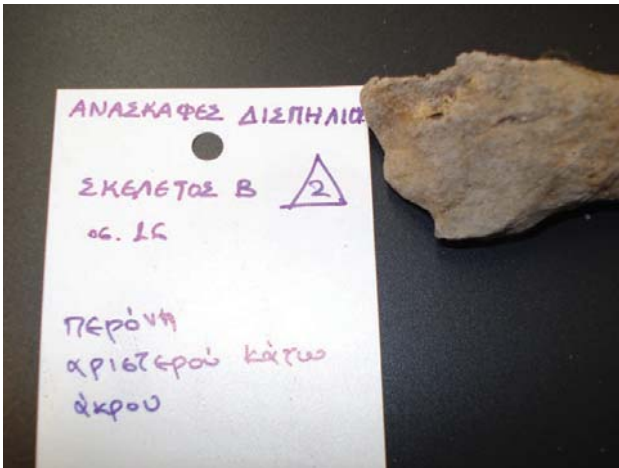 ΑΝΑΣΚΑΦΕΣ ΔΙΣΠΗΛΙΟ
ΣΚΕΛΕΤΟΣ Β 2
περόνη
αριστερού κάτω
άκρου